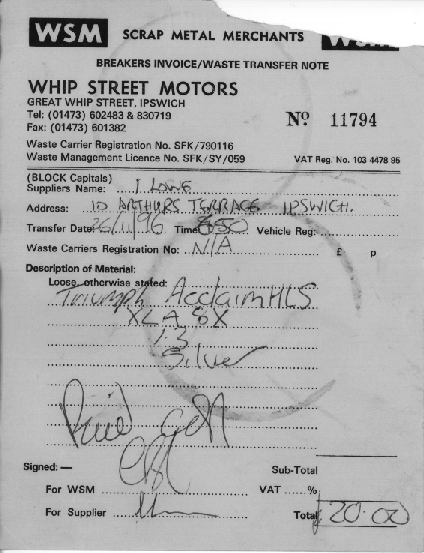 WSM SCRAP METAL MERCHANTS WSM
BREAKERS INVOICE/WASTE TRANSFER NOTE
WHIP STREET MOTORS
GREAT WHIP STREET, IPSWICH
Tel: (01473) 602483 & 830719
Fax: (01473) 601382
Nº 11794
Waste Carrier Registration No. SFK/790116
Waste Management Licence No. SFK/SY/059
VAT Reg. No. 103 4478 95
(BLOCK Capitals)
Suppliers Name: I LOWE
Address: 10 ARTHURS TERRACE IPSWICH.
Transfer Date: 26/11/96 Time: 850 Vehicle Reg:
Waste Carriers Registration No: N/A £ p
Description of Material:
Loose, otherwise stated:
Triumph Acclaim HLS
XLA 8X
1.3
Silver
Paid
Signed:—
Sub-Total
For WSM
VAT %
For Supplier
Total £ 20.00